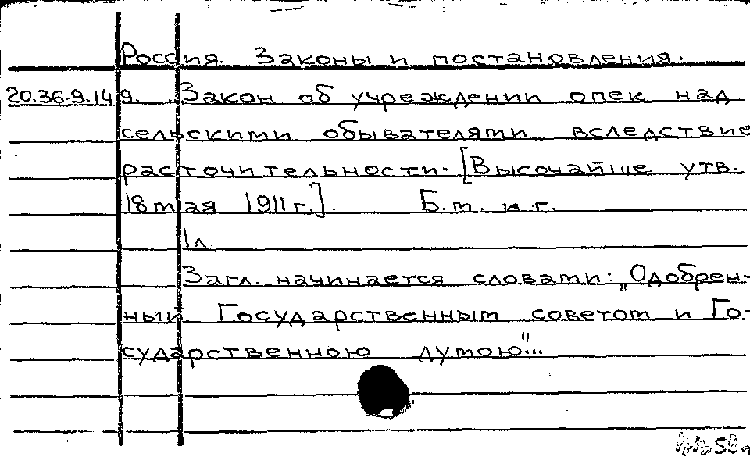 Россия. Законы и постановления.
20.36.9.149. Закон об учреждении опек над
сельскими обывателями вследствие
расточительности. [Высочайше утв.
18 мая 1911 г.] Б.м. и г.
1 л.
Загл. начинается словами: „Одобрен-
ный Государственным советом и Го-
сударственною думою"...